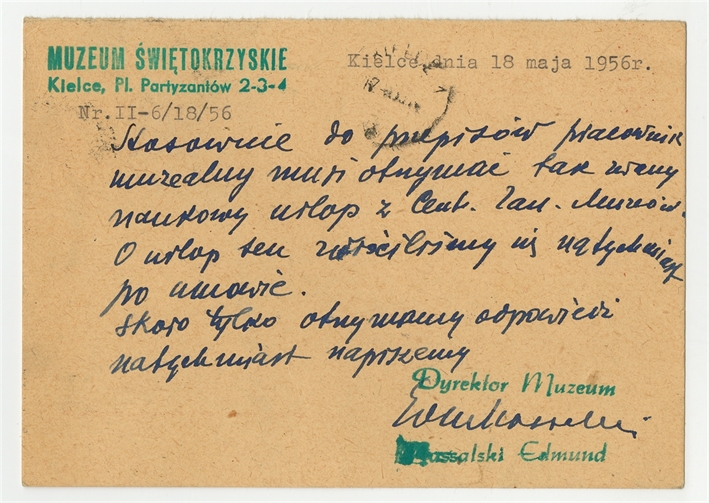 MUZEUM ŚWIĘTOKRZYSKIE
Kielce, Pl. Partyzantów 2-3-4
Kielce, dnia 18 maja 1956r.
Nr. II-6/18/56
Stosownie do przepisów pracownik
muzealny musi otrzymać tak zwany
naukowy urlop z Centr. Zarz. Muzeów.
O urlop ten zwróciliśmy się natychmiast
po umowie.
Skoro tylko otrzymamy odpowiedź
natychmiast napiszemy
Dyrektor Muzeum
Massalski Edmund